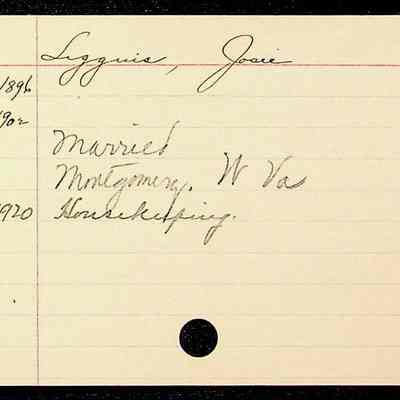 Liggins, Josie
1896
1902
Married
Montgomery, W Va
1920 Housekeeping.